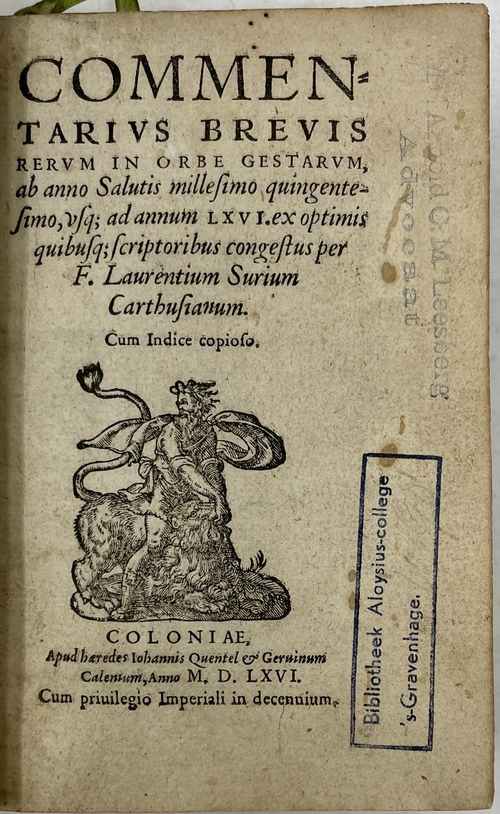 COMMEN-
TARIVS BREVIS
RERVM IN ORBE GESTARVM,
ab anno Salutis millesimo quingente-
simo, vsq; ad annum LXVI. ex optimis
quibusq; scriptoribus congestus per
F. Laurentium Surium
Carthusianum.
Cum Indice copioso.
COLONIAE,
Apud hæredes Iohannis Quentel & Geruinum
Calenium, Anno M. D. LXVI.
Cum priuilegio Imperiali in decennium.
Advocaat
Bibliotheek Aloysius-college
's-Gravenhage.